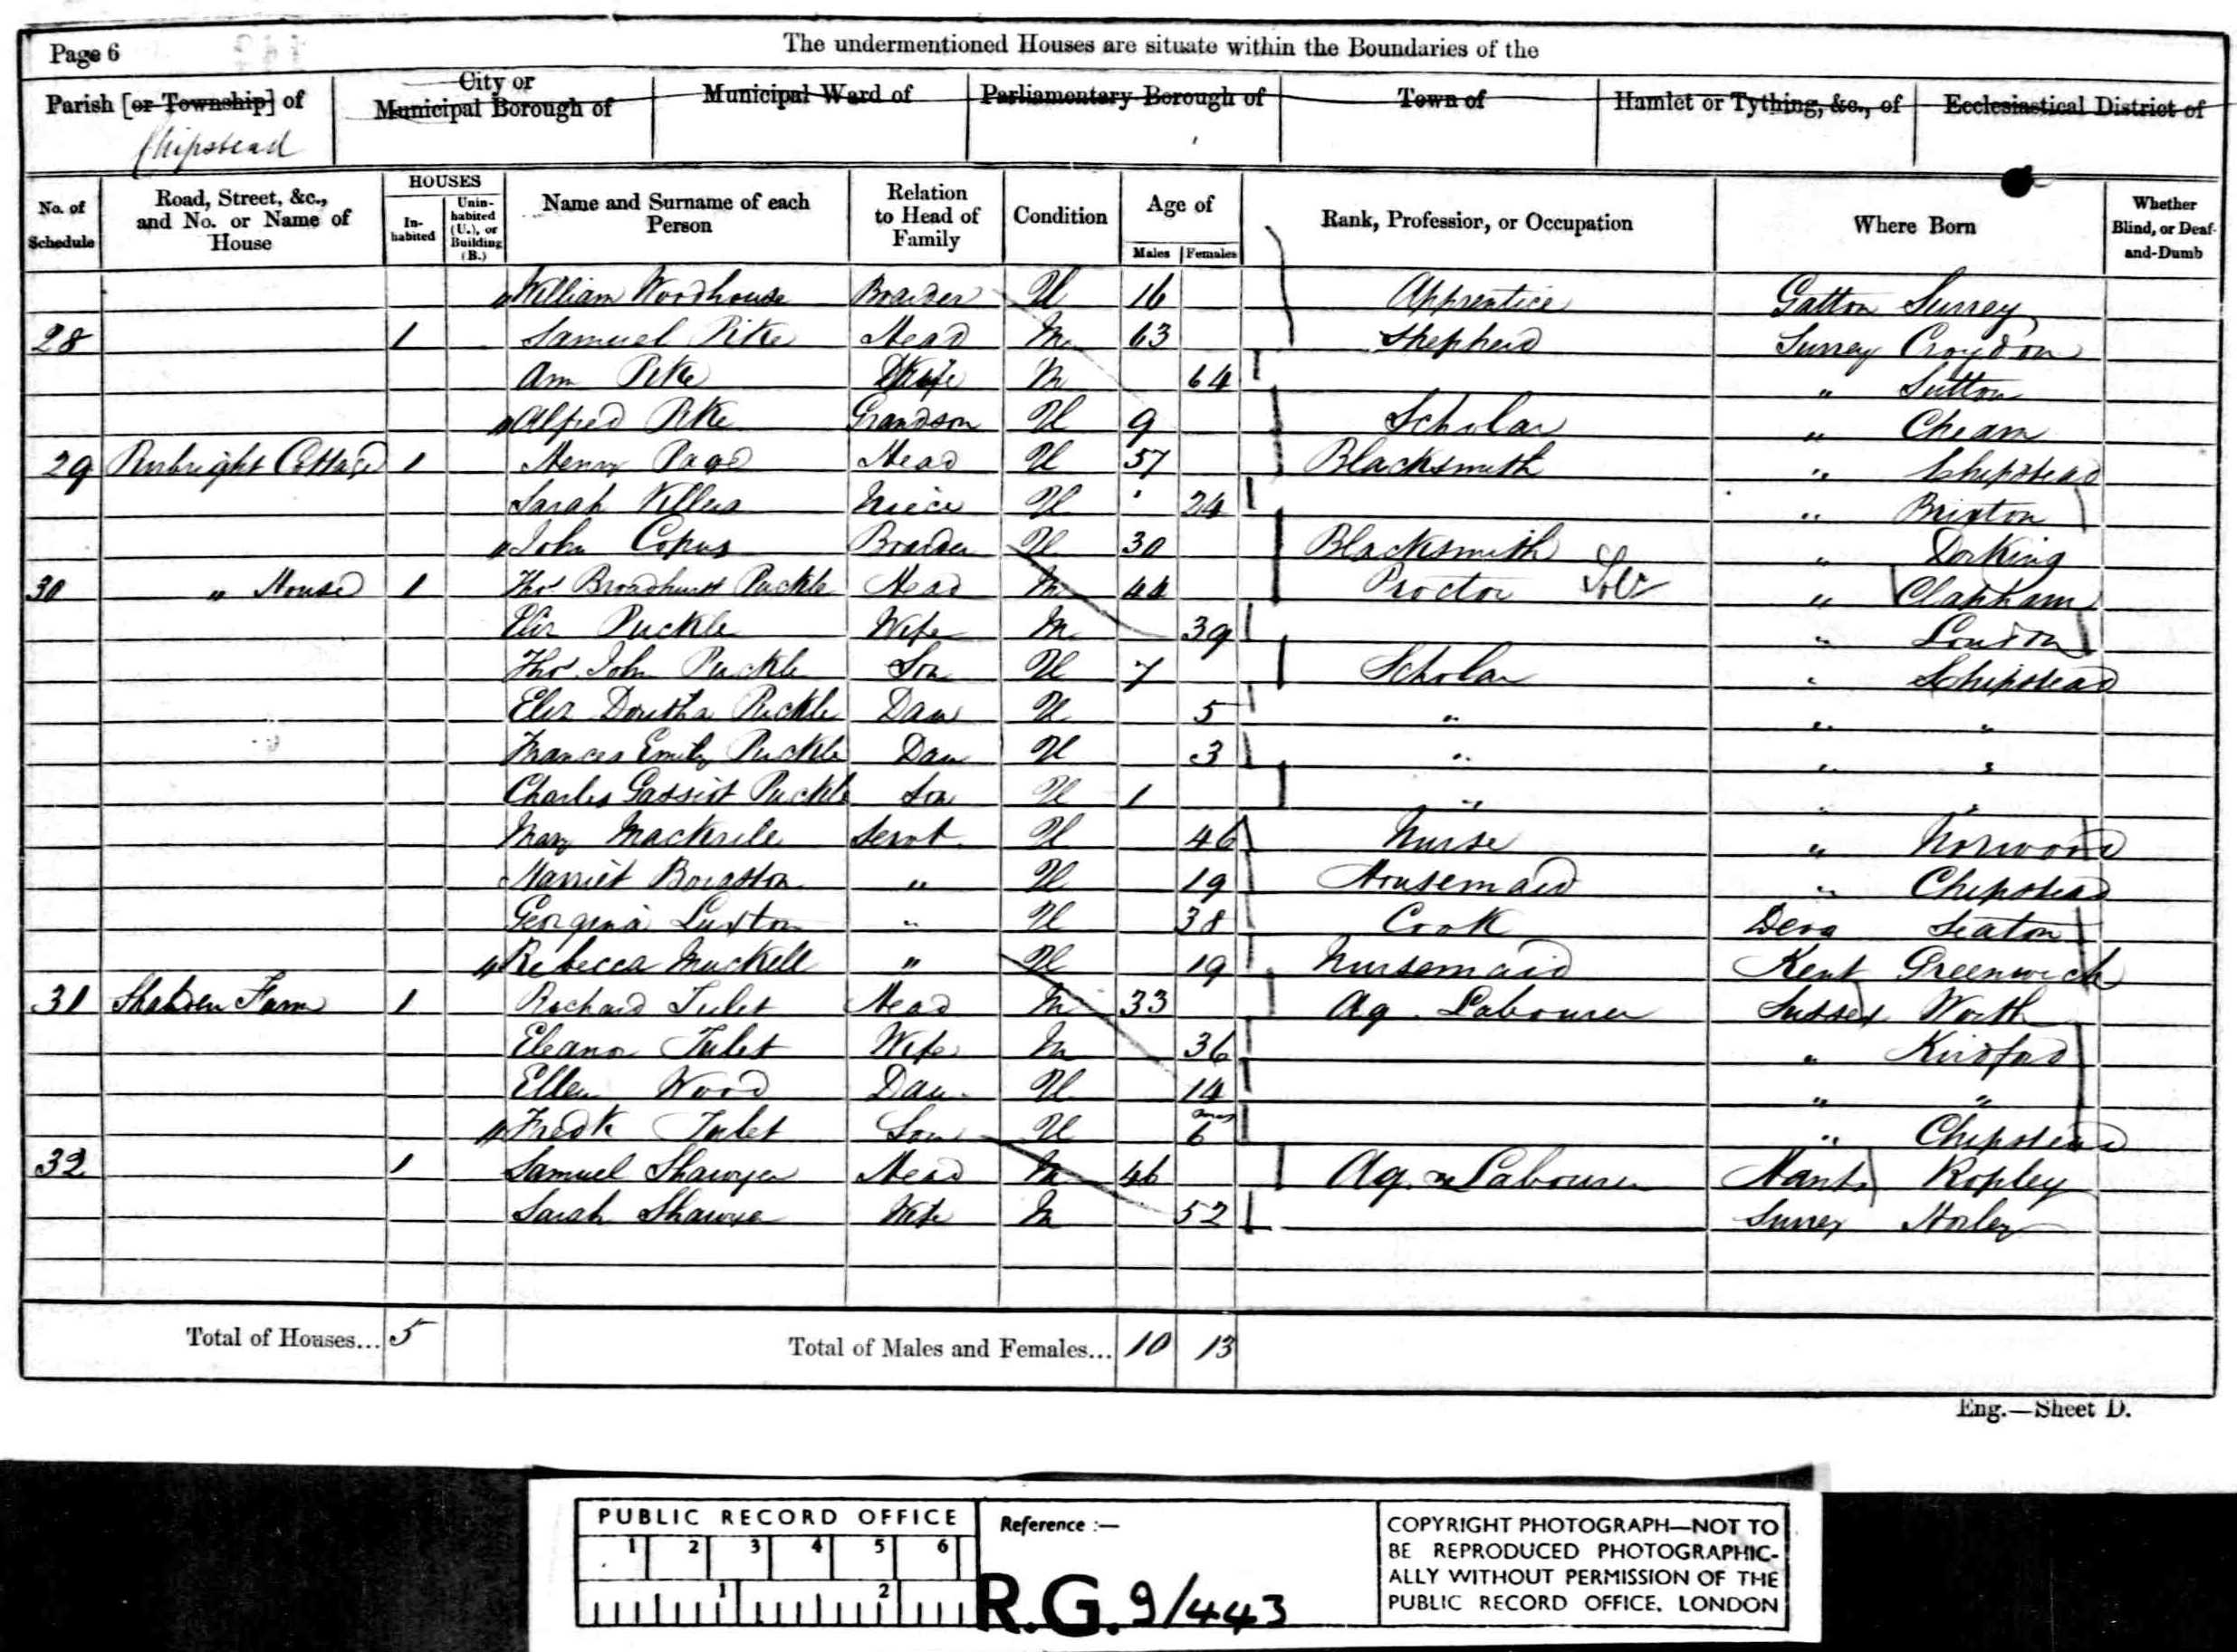 Page 6 The undermentioned Houses are situate within the Boundaries of the
Parish [or Township] of City or Municipal Borough of Municipal Ward of Parliamentary Borough of Town of Hamlet or Tything, &c., of Ecclesiastical District of
Chipstead
No. of Schedule Road, Street, &c., and No. or Name of House HOUSES Inhabited Uninhabited (U.), or Building (B.) Name and Surname of each Person Relation to Head of Family Condition Age of Males Females Rank, Profession, or Occupation Where Born Whether Blind, or Deaf-and-Dumb
William Woodhouse Boarder U 16 Apprentice Gatton Surrey
28 1 Samuel Pike Head M 63 Shepherd Surrey Croydon
Ann Pike Wife M 64 " Sutton
Alfred Pike Grandson U 9 Scholar " Cheam
29 Purbright Cottage 1 Henry Page Head U 57 Blacksmith " Chipstead
Sarah Niece U 24 " Brixton
John Copus Boarder U 30 Blacksmith " Dorking
30 " House 1 Thos Broadhurst Puckle Head M 44 Proctor Solr " Clapham
Eliz Puckle Wife M 39 " London
Thos. John Puckle Son U 7 Scholar " Chipstead
Eliz Puckle Dau U 5 " " "
Frances Emily Puckle Dau U 3 " " "
Charles Gassiot Puckle Son U 1 " " "
Mary Servt. U 46 Nurse " Norwood
Harriet " U 19 Housemaid " Chipstead
Georgina Luxton " U 38 Cook Devon Seaton
Rebecca Muckell " U 19 Nursemaid Kent Greenwich
31 Shabden Farm 1 Richard Tulet Head M 33 Ag. Labourer Sussex Worth
Eleanor Tulet Wife M 36 " Kirdford
Ellen Wood Dau. U 14 " "
Fredk Tulet Son U 6 mos " Chipstead
32 1 Samuel Shawyer Head M 46 Ag. Labourer Hants Ropley
Sarah Shawyer Wife M 52 Surrey Horley
Total of Houses... 5 Total of Males and Females... 10 13
Eng.—Sheet D.
PUBLIC RECORD OFFICE
1 2 3 4 5 6
1 2
Reference :—
R.G. 9/443
COPYRIGHT PHOTOGRAPH—NOT TO
BE REPRODUCED PHOTOGRAPHIC-
ALLY WITHOUT PERMISSION OF THE
PUBLIC RECORD OFFICE. LONDON